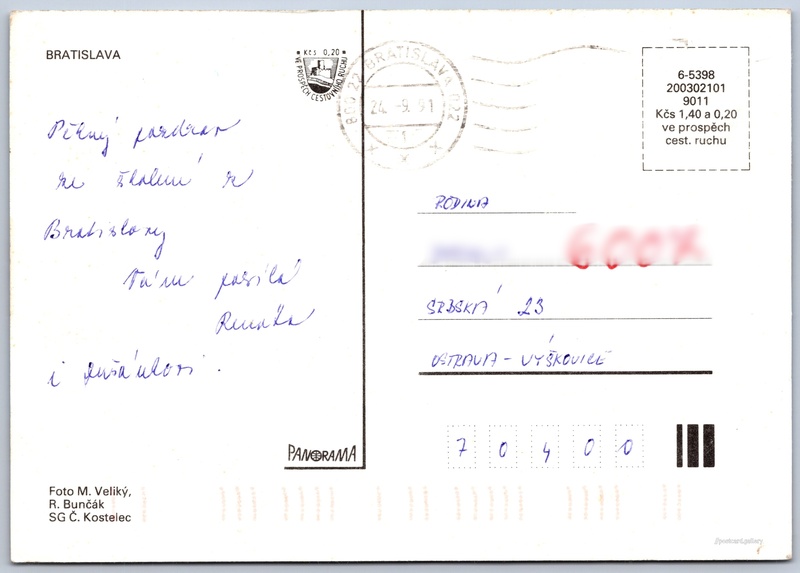 BRATISLAVA
Kčs 0,20
VE PROSPĚCH CESTOVNÍHO RUCHU
BRATISLAVA 022
24.-9.91
6-5398
200302101
9011
Kčs 1,40 a 0,20
ve prospěch
cest. ruchu
Pěkný pozdrav
ze školení z
Bratislavy
Vám posílá
Renata
i Dušánkovi.
RODINA
600X
SRBSKÁ 23
OSTRAVA - VÝŠKOVICE
70400
PANORAMA
Foto M. Veliký,
R. Bunčák
SG Č. Kostelec